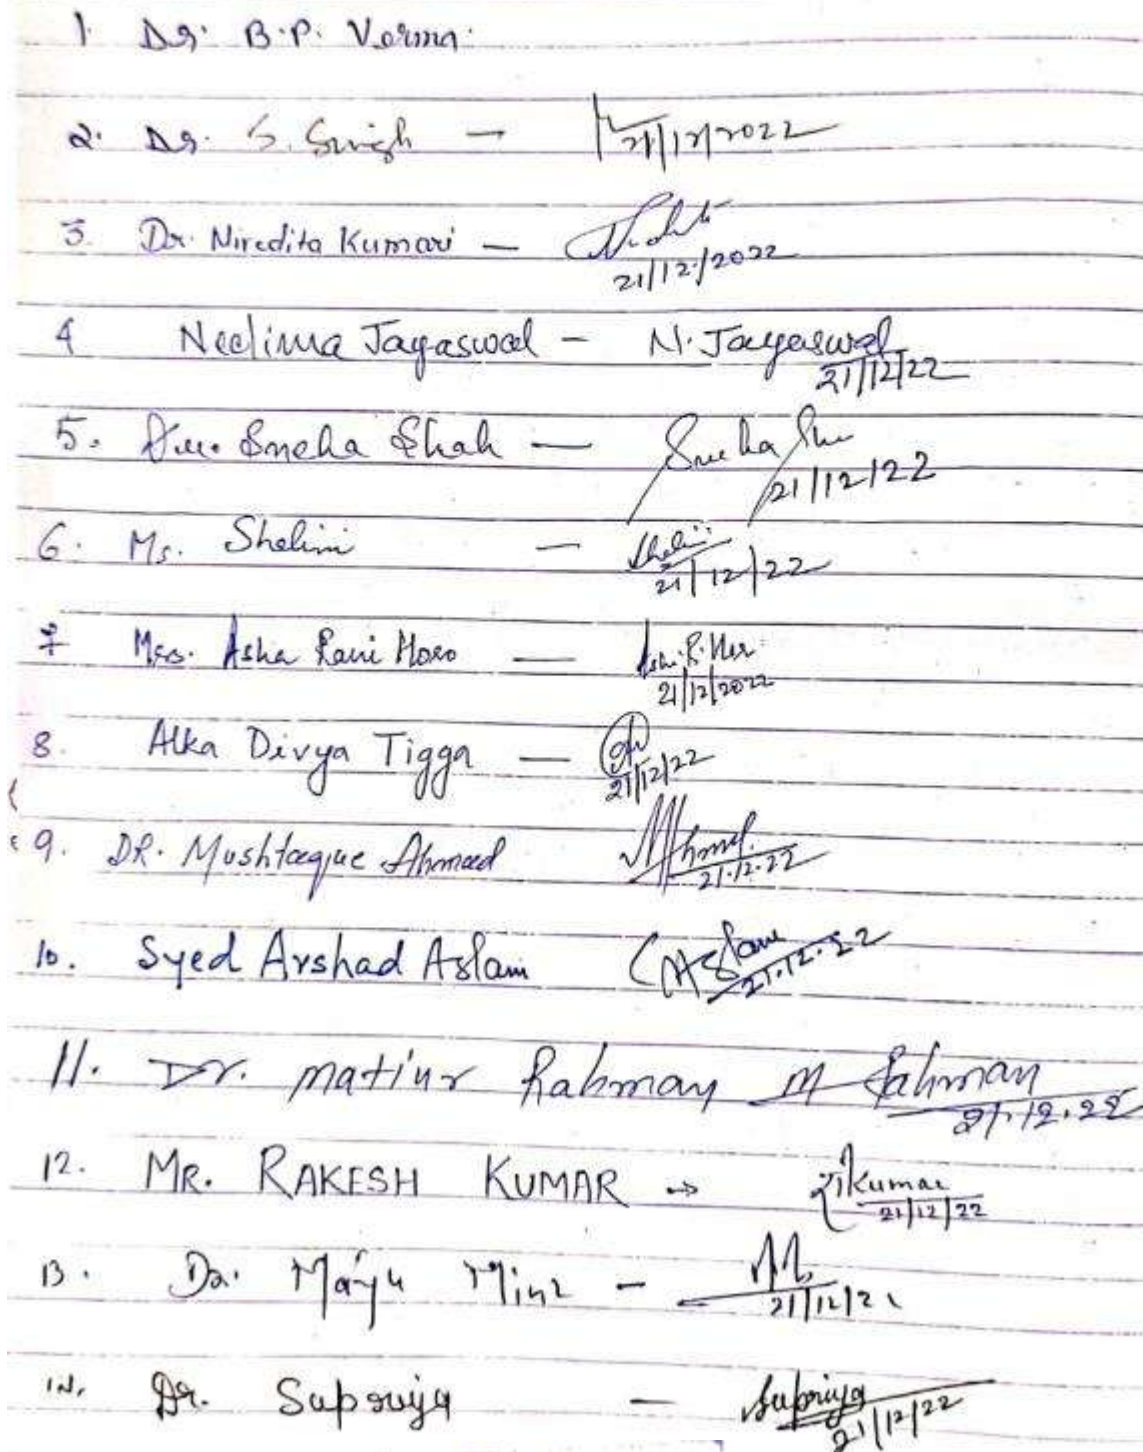 1. Dr. B.P. Verma.
2. Dr. S. Singh — 21/12/2022
3. Dr. Nivedita Kumari — 21/12/2022
4 Neelima Jayaswal — N. Jayaswal 21/12/22
5. Dr. Sneha Shah — Sneha 21/12/22
6. Ms. Shalini — Shalini 21/12/22
7 Mrs. Asha Rani Horo — 21/12/2022
8. Alka Divya Tigga — 21/12/22
9. DR. Mushtaque Ahmad 21.12.22
10. Syed Arshad Aslam Aslam 21.12.22
11. Dr. Matiur Rahman M Rahman 21.12.22
12. MR. RAKESH KUMAR → Kumar 21/12/22
13. Dr. Minz — 21/12/2
14. Dr. Supriya — Supriya 21/12/22